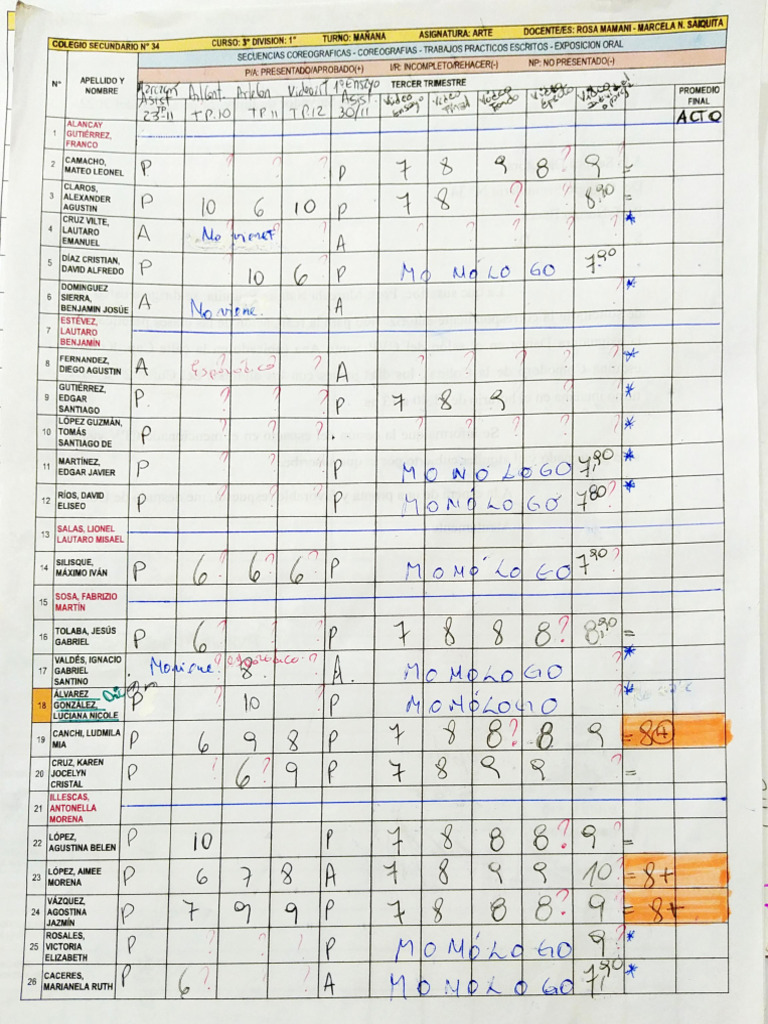 COLEGIO SECUNDARIO N° 34 CURSO: 3° DIVISION: 1° TURNO: MAÑANA ASIGNATURA: ARTE DOCENTE/ES: ROSA MAMANI - MARCELA N. SAIQUITA
SECUENCIAS COREOGRAFICAS - COREOGRAFIAS - TRABAJOS PRACTICOS ESCRITOS - EXPOSICION ORAL
P/A: PRESENTADO/APROBADO(+) I/R: INCOMPLETO/REHACER(-) NP: NO PRESENTADO(-)
N° APELLIDO Y NOMBRE TERCER TRIMESTRE PROMEDIO FINAL
Asist 1° Ensayo Asist. Video Ensayo Video Final Video
23-11 T.P.10 T.P 11 T.P.12 30/11 ACTO
1 ALANCAY GUTIÉRREZ, FRANCO
2 CAMACHO, MATEO LEONEL P ? ? ? P 7 8 9 8? 9 =
3 CLAROS, ALEXANDER AGUSTIN P 10 6 10 P 7 8 ? ? 8.90
4 CRUZ VILTE, LAUTARO EMANUEL A No A ? ? ? ? ? *
5 DÍAZ CRISTIAN, DAVID ALFREDO P 10 6? P MONÓLOGO 7.90
6 DOMINGUEZ SIERRA, BENJAMIN JOSÚE A No viene. A *
7 ESTÉVEZ, LAUTARO BENJAMÍN
8 FERNANDEZ, DIEGO AGUSTIN A Esporádico ? A ? ? ? ? ? *
9 GUTIÉRREZ, EDGAR SANTIAGO P. ? ? ? P 7 8 9 ? ? *
10 LÓPEZ GUZMÁN, TOMÁS SANTIAGO DE P ? ? ? . ? ? ? ? ? *
11 MARTÍNEZ, EDGAR JAVIER P ? ? ? P MONÓLOGO 7,90 *
12 RÍOS, DAVID ELISEO P ? ? ? P MONÓLOGO 7,80 *
13 SALAS, LIONEL LAUTARO MISAEL
14 SILISQUE, MÁXIMO IVÁN P 6? 6? 6? P MONÓLOGO 7,90
15 SOSA, FABRIZIO MARTÍN
16 TOLABA, JESÚS GABRIEL P 6? ? ? P 7 8 8 8? 8,90 =
17 VALDÉS, IGNACIO GABRIEL SANTINO . No viene ? esporádico 8 ? A. MONÓLOGO *
18 ÁLVAREZ GONZÁLEZ, LUCIANA NICOLE P ? 10 ? P MONÓLOGO *
19 CANCHI, LUDMILA MIA P 6 9 8 P 7 8 8? 8 9 = 8+
20 CRUZ, KAREN JOCELYN CRISTAL P ? 6? 9 P 7 8 9 9 =
21 ILLESCAS, ANTONELLA MORENA
22 LÓPEZ, AGUSTINA BELEN P 10 P 7 8 8 8? 9 =
23 LÓPEZ, AIMEE MORENA P 6 7 8 A 7 8 9 9 10 = 8+
24 VÁZQUEZ, AGOSTINA JAZMÍN P 7 9 9 P 7 8 8 8? 9 = 8+
25 ROSALES, VICTORIA ELIZABETH P ? ? ? P MONÓLOGO 9? *
26 CACERES, MARIANELA RUTH P 6? ? ? A MONÓLOGO 7,90 *